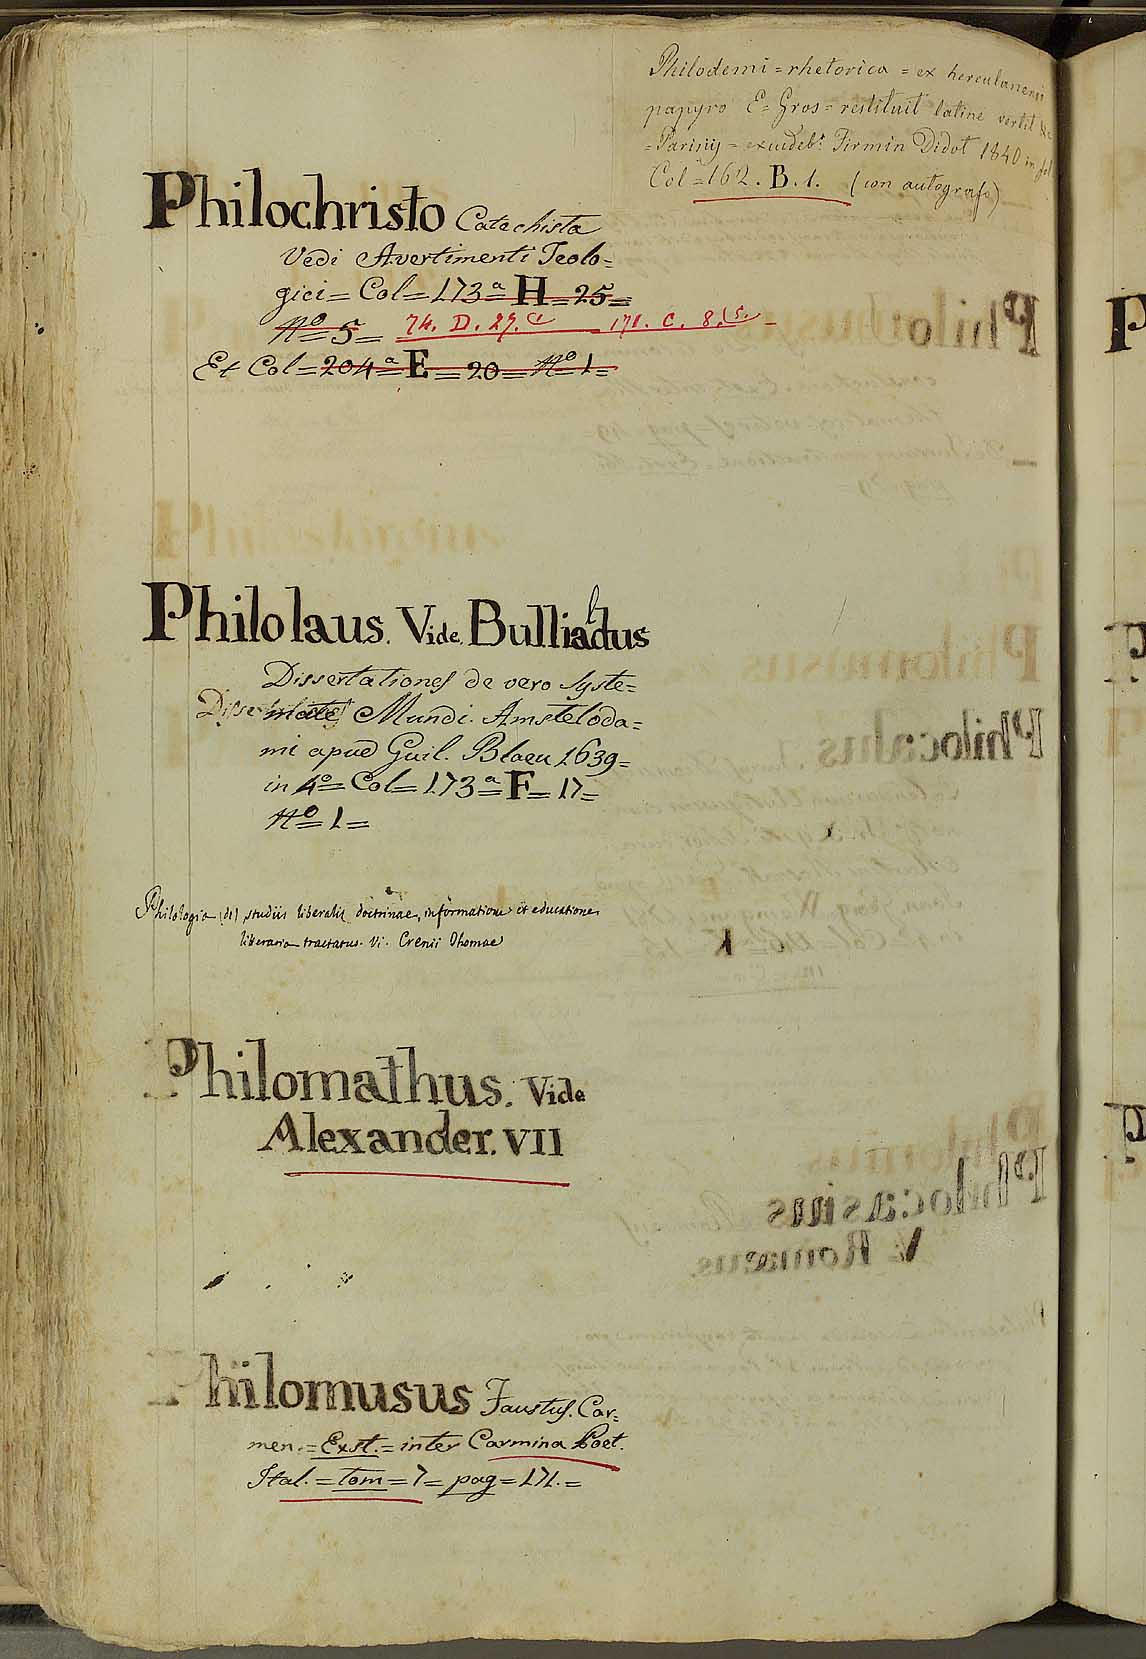 Philodemi = rhetorica = ex herculanensi
papyro E = Gros = restituit latine vertit &c
= Parisiis = excudebt. Firmin Didot 1840 in fol
Col = 162. B. 1. (con autografo)
Philochristo Catechista
Vedi Avertimenti Teolo=
gici = Col = 173a = H = 25 =
No = 5 = 74. D. 27. 171. C. 8.15.
Et Col = 204a = E = 20 = No 1 =
Philolaus. Vide. Bullialdus
Dissertationes de vero syste=
mate Mundi. Amsteloda=
mi apud Guil. Blaeu 1639=
in 4o = Col = 173a = F = 17 =
No = 1 =
Philologia (de) studiis liberalis doctrinae, informatione et educatione
literaria tractatus. Vi. Crenii Thomae
Philomathus. Vide
Alexander. VII
Philomusus Faustus. Car=
men. = Exst. = inter Carmina Poet.
Ital. = tom = 7 = pag = 171. =